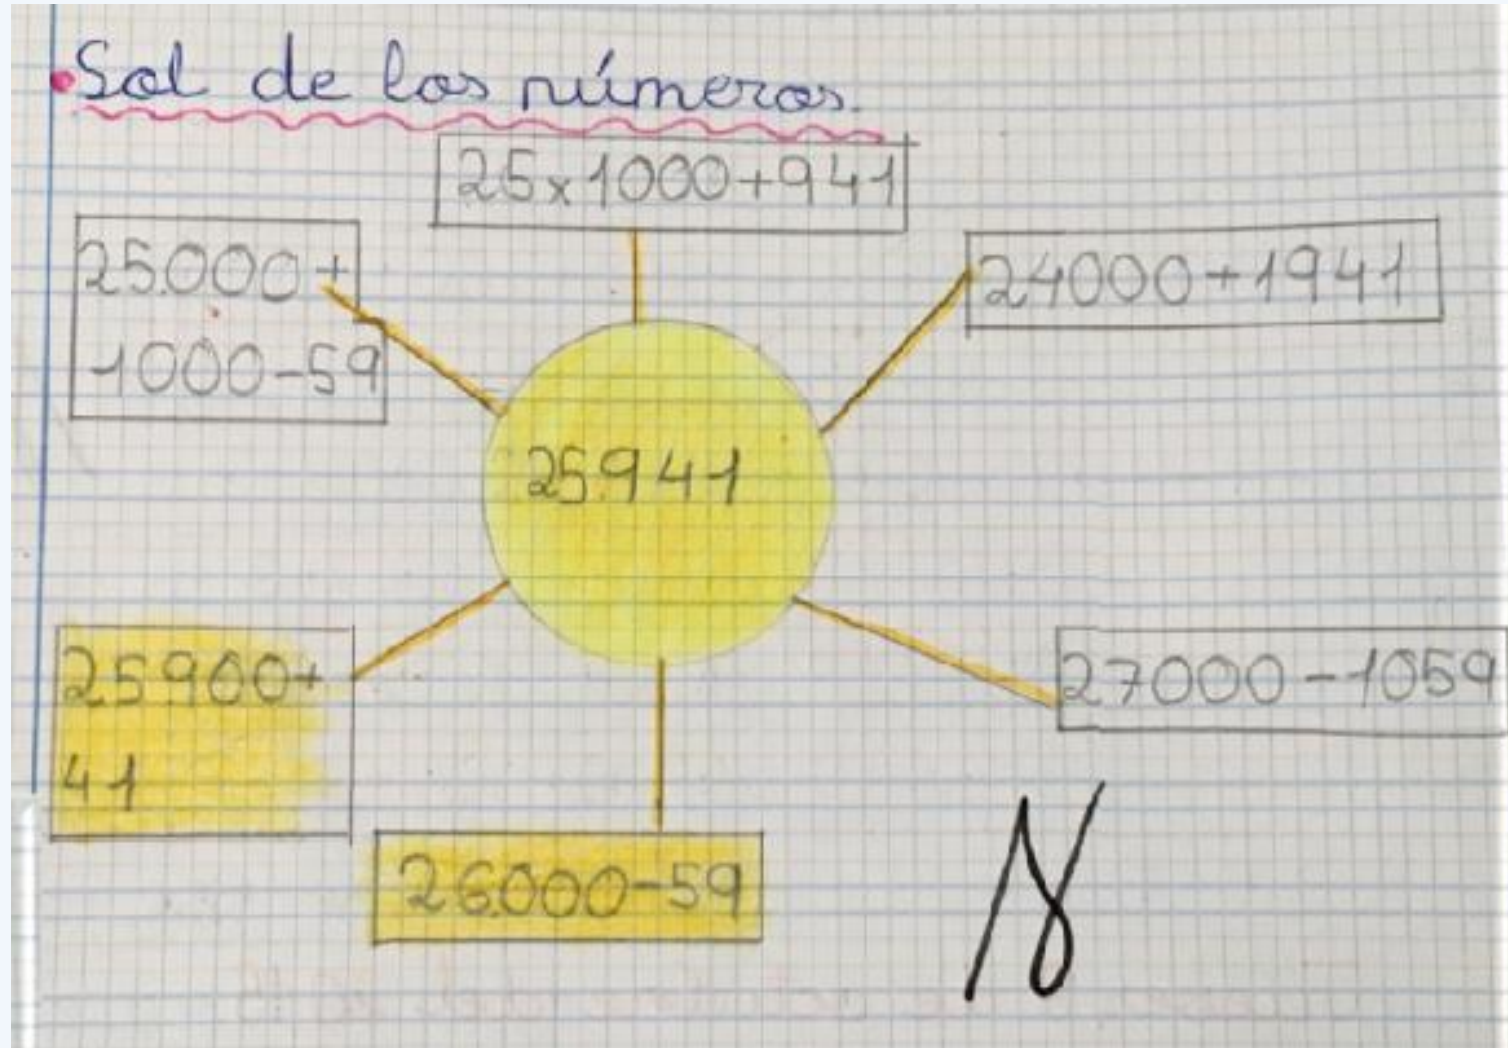 Sol de los números.
25x1000+941
25.000+
1000-59
24000+1941
25.941
25900+
41
27000-1059
26.000-59